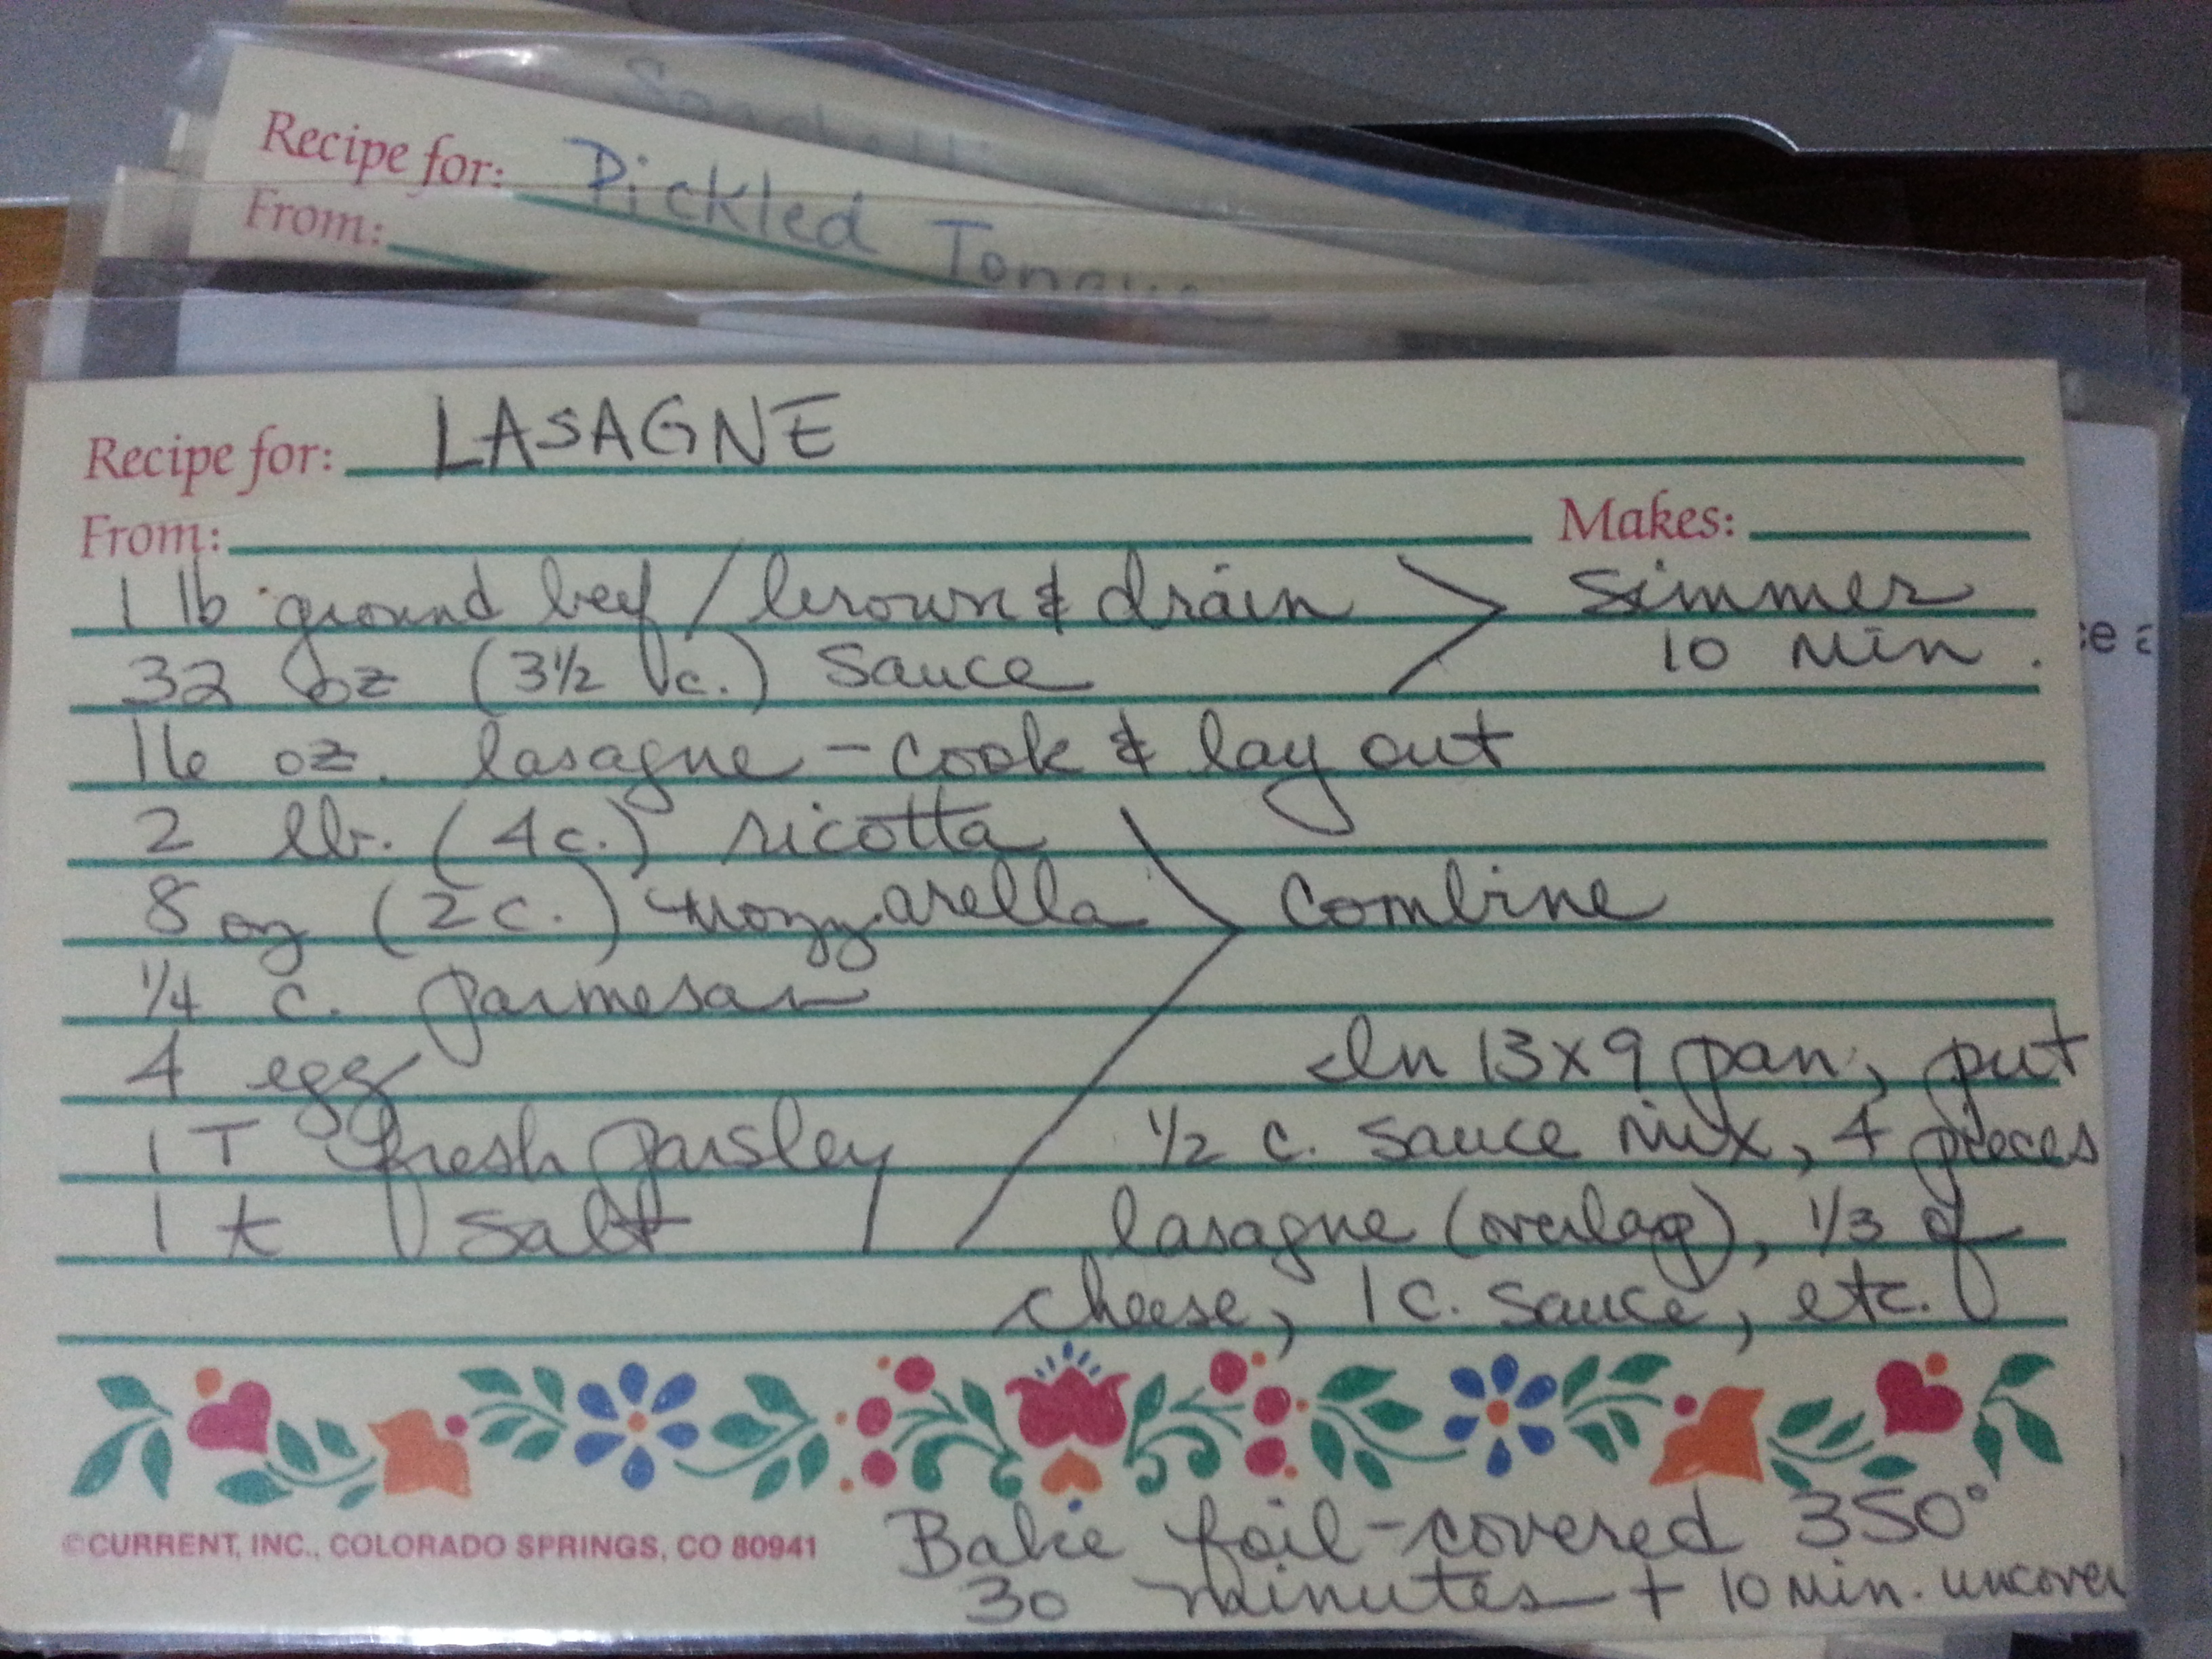 Recipe for: Pickled Tongue
From:
Recipe for: LASAGNE
From: Makes:
1 lb ground beef / brown & drain > simmer
32 oz (3½ c.) sauce 10 min.
16 oz. lasagne - cook & lay out
2 lb. (4 c.) ricotta
8 oz (2 c.) mozzarella > combine
1/4 c. parmesan
4 egg
1 T fresh parsley
1 t salt
In 13x9 pan, put
1/2 c. sauce mix, 4 pieces
lasagne (overlap), 1/3 of
cheese, 1 c. sauce, etc.
©CURRENT, INC., COLORADO SPRINGS, CO 80941
Bake foil-covered 350°
30 minutes + 10 min. uncover